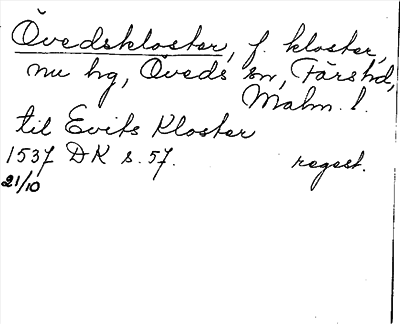 Övedskloster, f. kloster,
nu hg, Öveds sn, Färs hd,
Malm. l.
til Evits Kloster
1537 DK s. 57. regest.
21/10